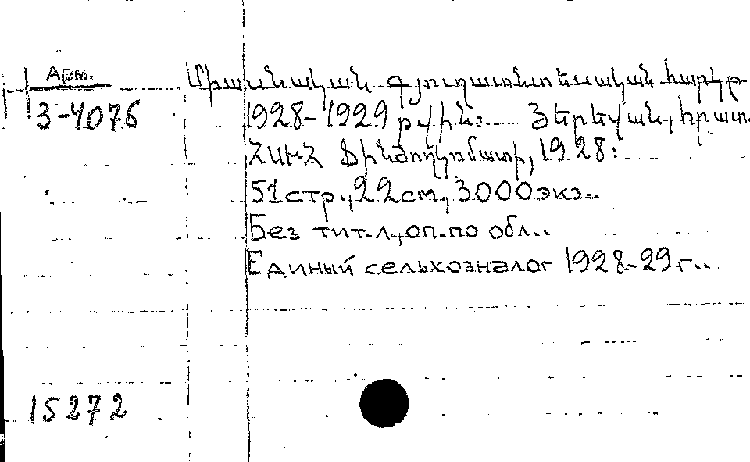 Арм.
3-4076
Միասնական գյուղատնտեսական հարկը
1928-1929 թվին։ Յերեվան, հրատ.
ՀՍԽՀ Ֆինժողկոմատի, 1928։
51стр., 22см., 3000экз..
Без тит.л., оп. по обл..
Единый сельхозналог 1928-29г..
15272